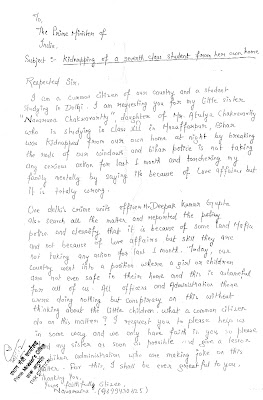 To,
The Prime Minister of
India.
Subject :- Kidnapping of a seventh class student from her own home
Respected Sir,
I am a common citizen of our country and a student
studying in Delhi. I am requesting you for my little sister
"Navaruna Chakravarthy" daughter of Mr. Atulya Chakravarthy
who is studying in class VII in Muzaffarpur, Bihar
was kidnapped from our own home at night by breaking
the rods of our windows and bihar police is not taking
any serious action for last 1 month and torchering my
family mentally by saying its because of Love affairs but
it is totally wrong.
One delhi's crime with officer Mr. Deepak kumar Gupta
also search all the matter and reported the
police and classify that it is because of some land Mafia
and not because of Love affairs but still they are
not taking any action for last 1 month. Today, our
country went into a position where a girl or children
are not even safe in their home and this is
for all of us. All officers and Administration there
were doing nothing but conspiracy on this without
thinking about the little children. what a common citizen
do on this matter? I request you to please help us
in some way and we only have faith in you so please
find my sister as soon as possible and give a lesson
bihar administration who are making joke on this
matter. For this, I shall be ever grateful to you.
Thanking You,
Yours faithfully Citizen,